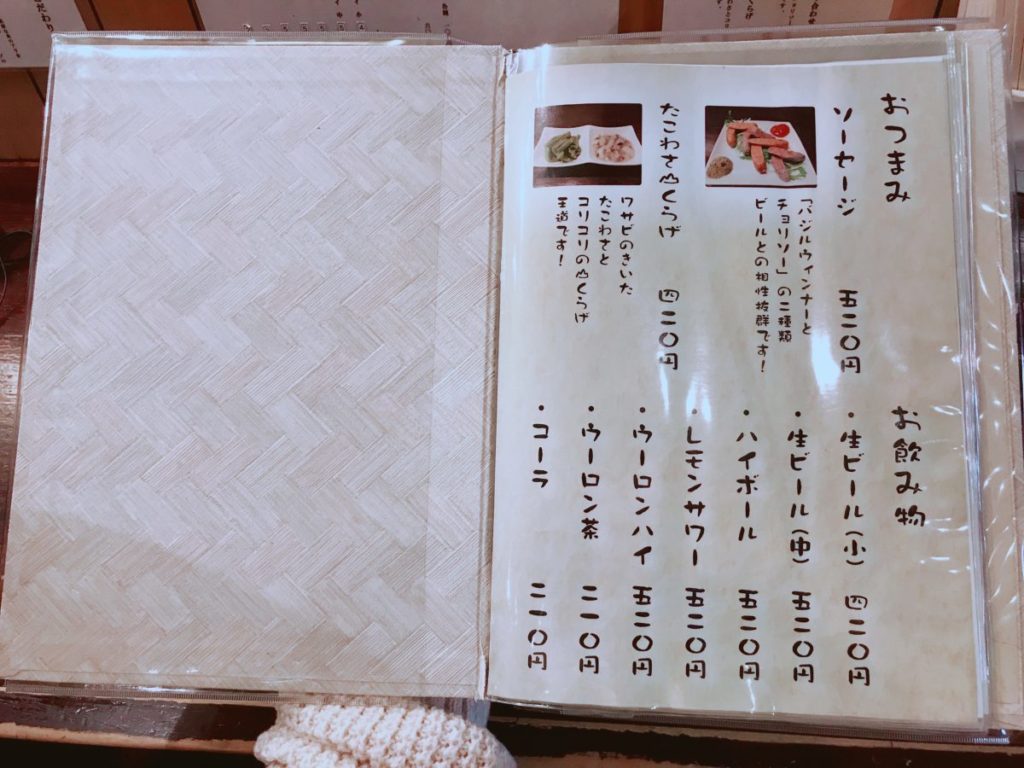 おつまみ
ソーセージ 五二〇円
「バジルウィンナーと
チョリソー」の二種類
ビールとの相性抜群です!
たこわさ山くらげ 四二〇円
ワサビのきいた
たこわさと
コリコリの山くらげ
王道です!
お飲み物
・生ビール(小) 四二〇円
・生ビール(中) 五二〇円
・ハイボール 五二〇円
・レモンサワー 五二〇円
・ウーロンハイ 五二〇円
・ウーロン茶 二一〇円
・コーラ 二一〇円